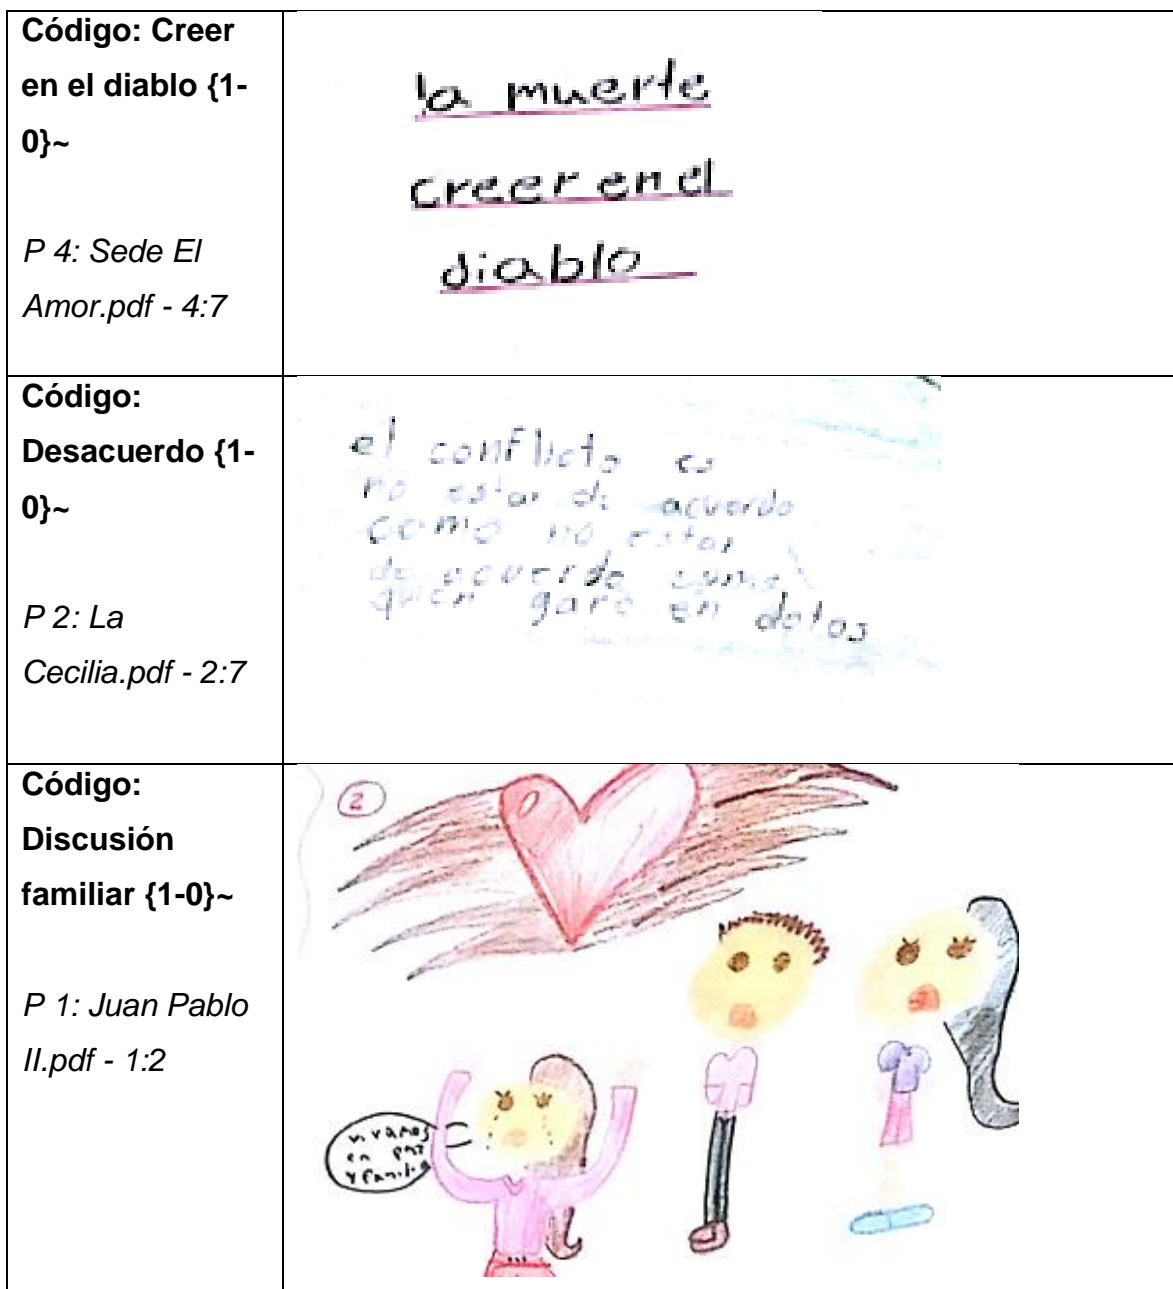 Código: Creer
en el diablo {1-
0}~
P 4: Sede El
Amor.pdf - 4:7
la muerte
creer en el
diablo
Código:
Desacuerdo {1-
0}~
P 2: La
Cecilia.pdf - 2:7
el conflicto es
no estar de acuerdo
como no estar
de acuerdo como
quien garo en datos
Código:
Discusión
familiar {1-0}~
P 1: Juan Pablo
II.pdf - 1:2
2
vivamos
en paz
y familia